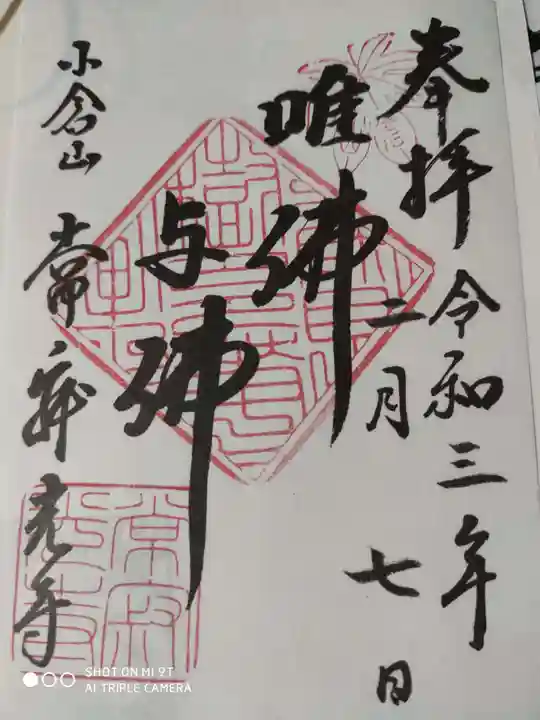 奉拝
令和三年
二月
七日
唯佛
与佛
小倉山
常寂光寺
常寂
光寺
SHOT ON MI 9T
AI TRIPLE CAMERA